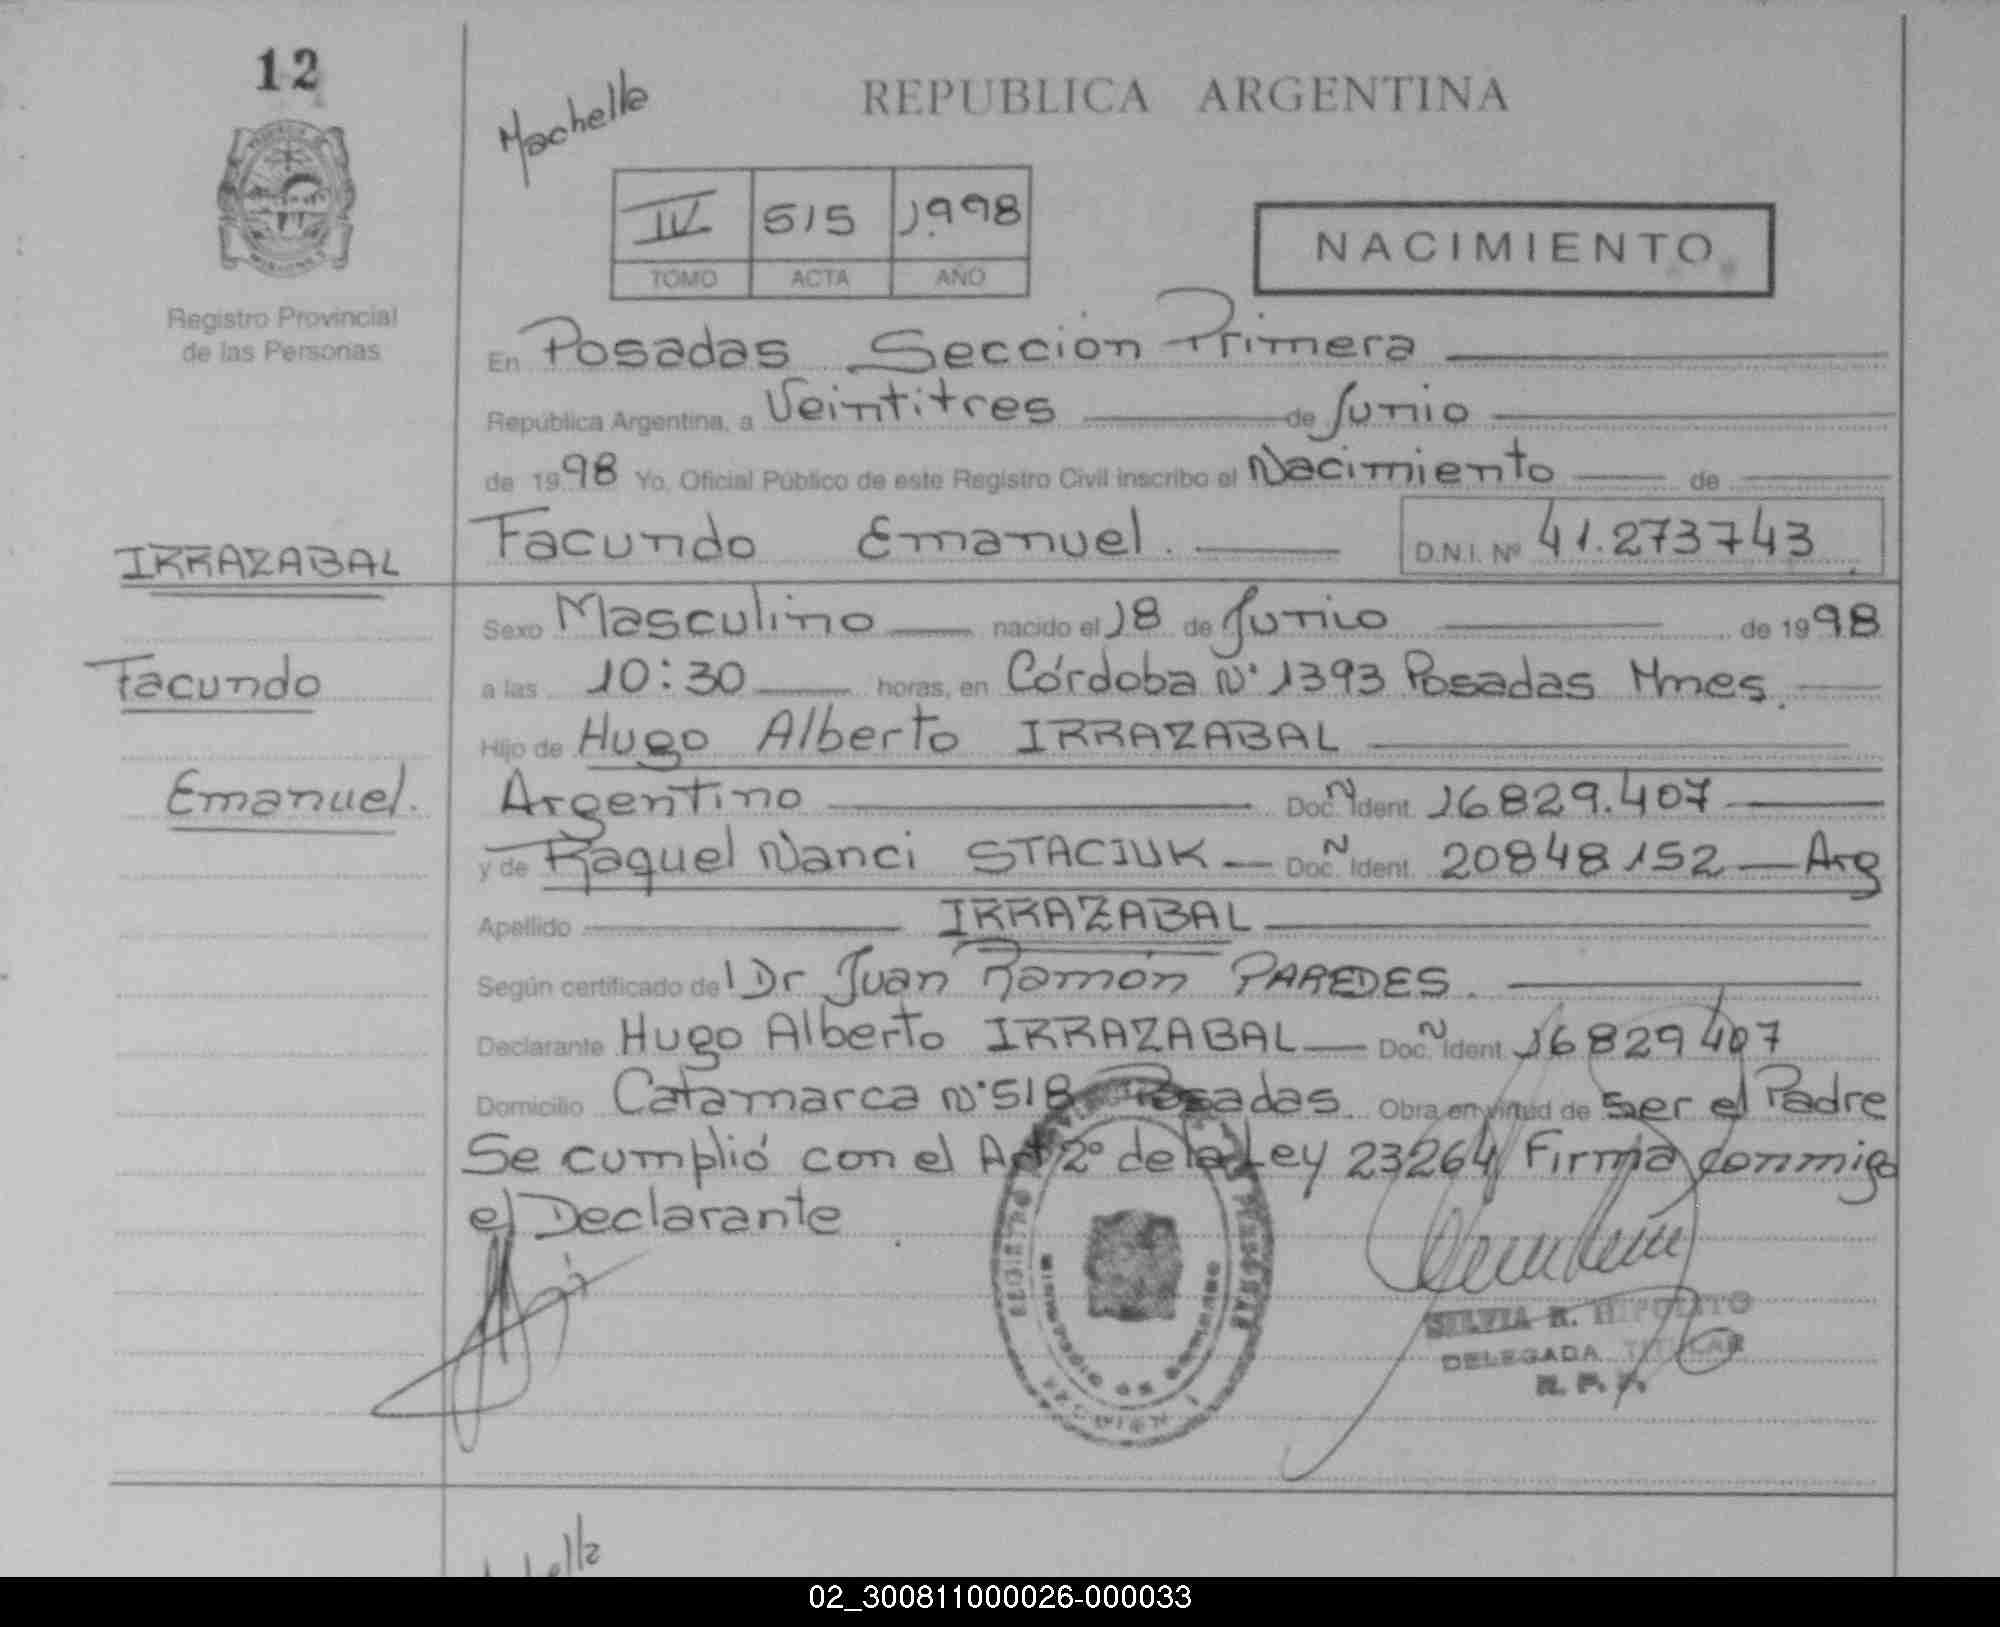 12
Machella
REPUBLICA ARGENTINA
IV 515 1.998
TOMO ACTA AÑO
NACIMIENTO
Registro Provincial
de las Personas
En Posadas Sección Primera
República Argentina, a Veintitres de Junio
de 1998 Yo, Oficial Público de este Registro Civil inscribo el Nacimiento de
IRRAZABAL
Facundo Emanuel. D.N.I. Nº 41.273743
Sexo Masculino nacido el 18 de Junio de 1998
Facundo
a las 10:30 horas, en Córdoba Nº 1393 Posadas Mnes.
Hijo de Hugo Alberto IRRAZABAL
Emanuel.
Argentino Doc. N Ident. 16829.407
y de Raquel Nanci STACIUK Doc. N Ident. 20848152 Arg
Apellido IRRAZABAL
Según certificado del Dr Juan Ramón PAREDES.
Declarante Hugo Alberto IRRAZABAL Doc. N Ident. 16829407
Domicilio Catamarca Nº 518 Posadas Obra en virtud de ser el Padre
Se cumplió con el Art 2º de la Ley 23264 Firma conmigo
el Declarante
REGISTRO PERSONAS
MINISTERIO DE GOBIERNO
SECCION 1
SILVIA R. HIPOLITO
DELEGADA TITULAR
R. P. P.
02_300811000026-000033